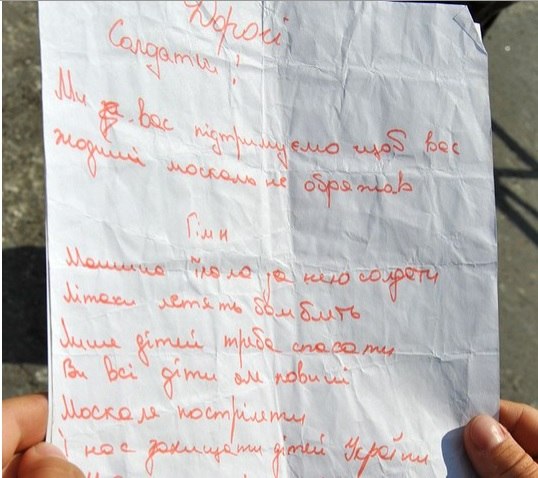 Дорогі
Солдати!
Ми вас підтримуємо щоб вас
жодний москаль не обряжав
Гімн
Машина їхала за нею солдати
Літаки летять бомблять
Лише дітей треба спасати
Ви всі діти ми повинні
Москаля постріляти
І нас захищати дітей України